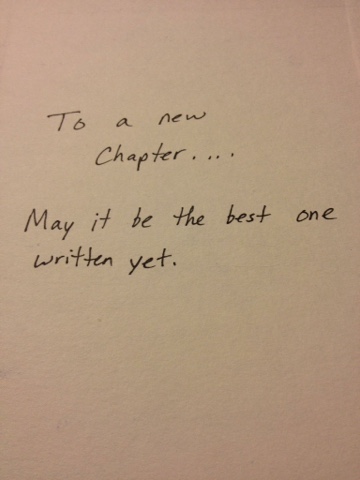 To a new
Chapter....
May it be the best one
written yet.